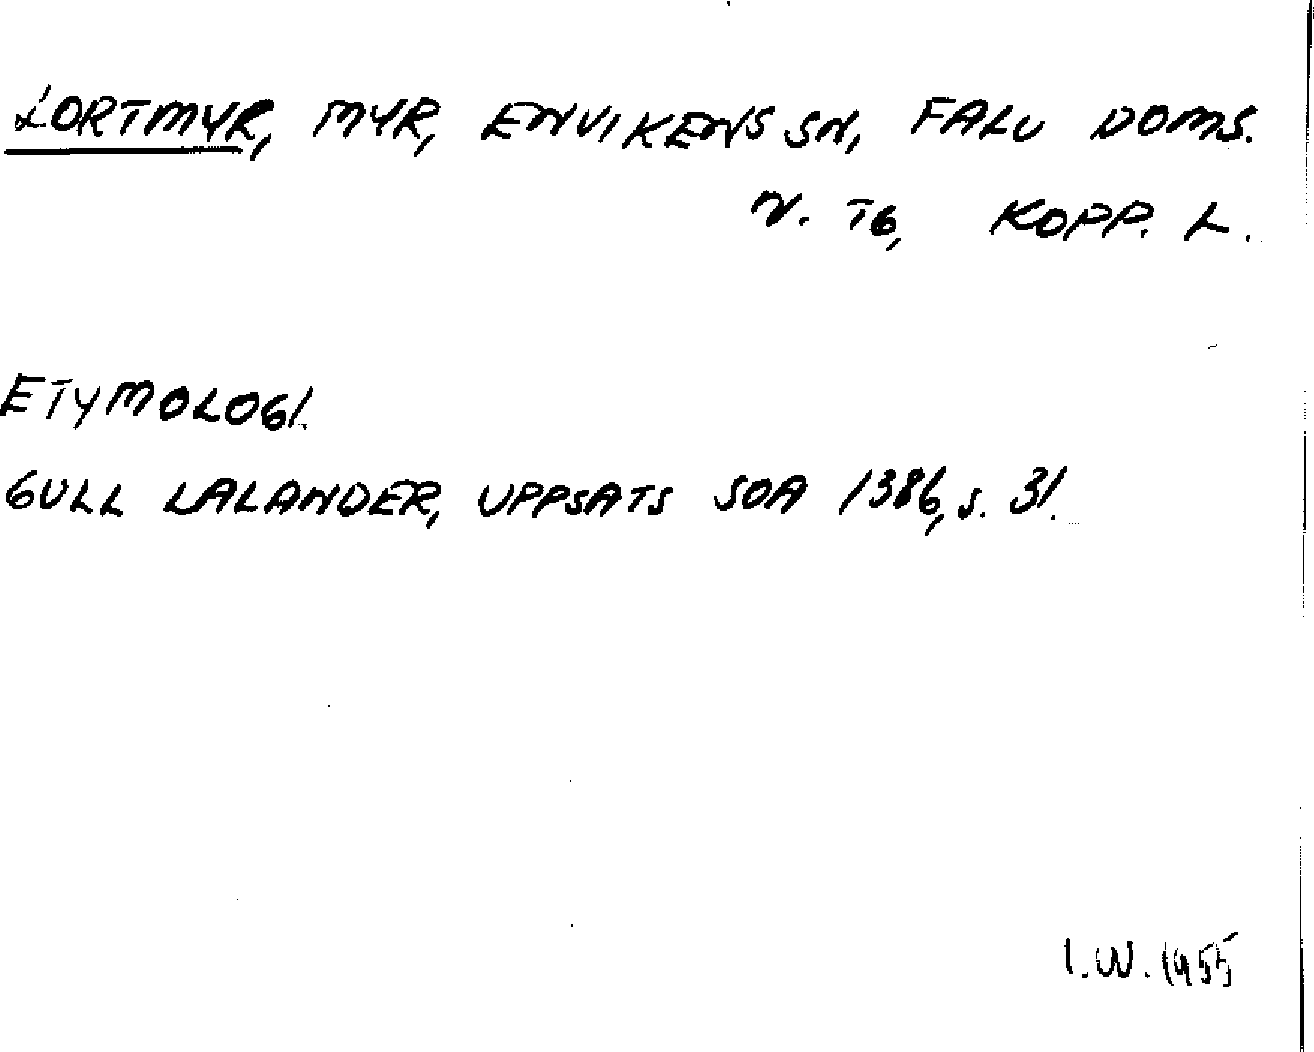 LORTMYR, MYR, ENVIKENS SN, FALU DOMS.
N. TG, KOPP. L.
ETYMOLOGI.
GULL LALANDER, UPPSATS SOA 1386, s. 31.
I.W. 1955